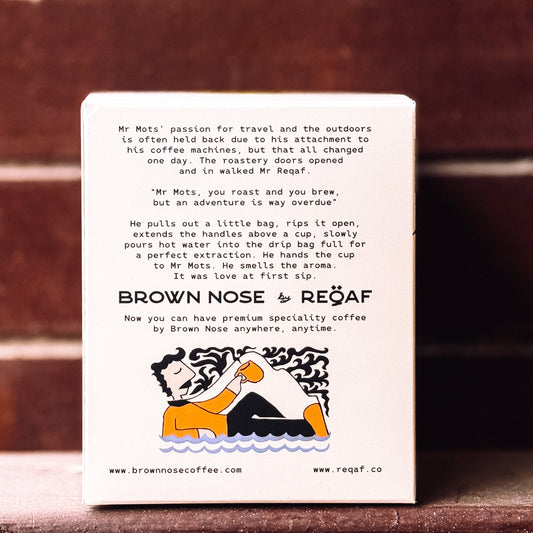 Mr Mots' passion for travel and the outdoors
is often held back due to his attachment to
his coffee machines, but that all changed
one day. The roastery doors opened
and in walked Mr Reqaf.
"Mr Mots, you roast and you brew,
but an adventure is way overdue"
He pulls out a little bag, rips it open,
extends the handles above a cup, slowly
pours hot water into the drip bag full for
a perfect extraction. He hands the cup
to Mr Mots. He smells the aroma.
It was love at first sip.
BROWN NOSE by REQAF
Now you can have premium speciality coffee
by Brown Nose anywhere, anytime.
www.brownnosecoffee.com www.reqaf.co